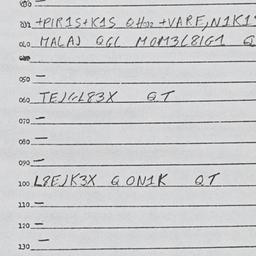 +PIR1S+K1S QH92 +VARE,N1K1
040 MALAJ QGL MOM3L81G1 Q
050 –
060 TEJGL83X QT
070 –
080 –
090 –
100 L8EJK3X Q ON1K QT
110 –
120 –
130